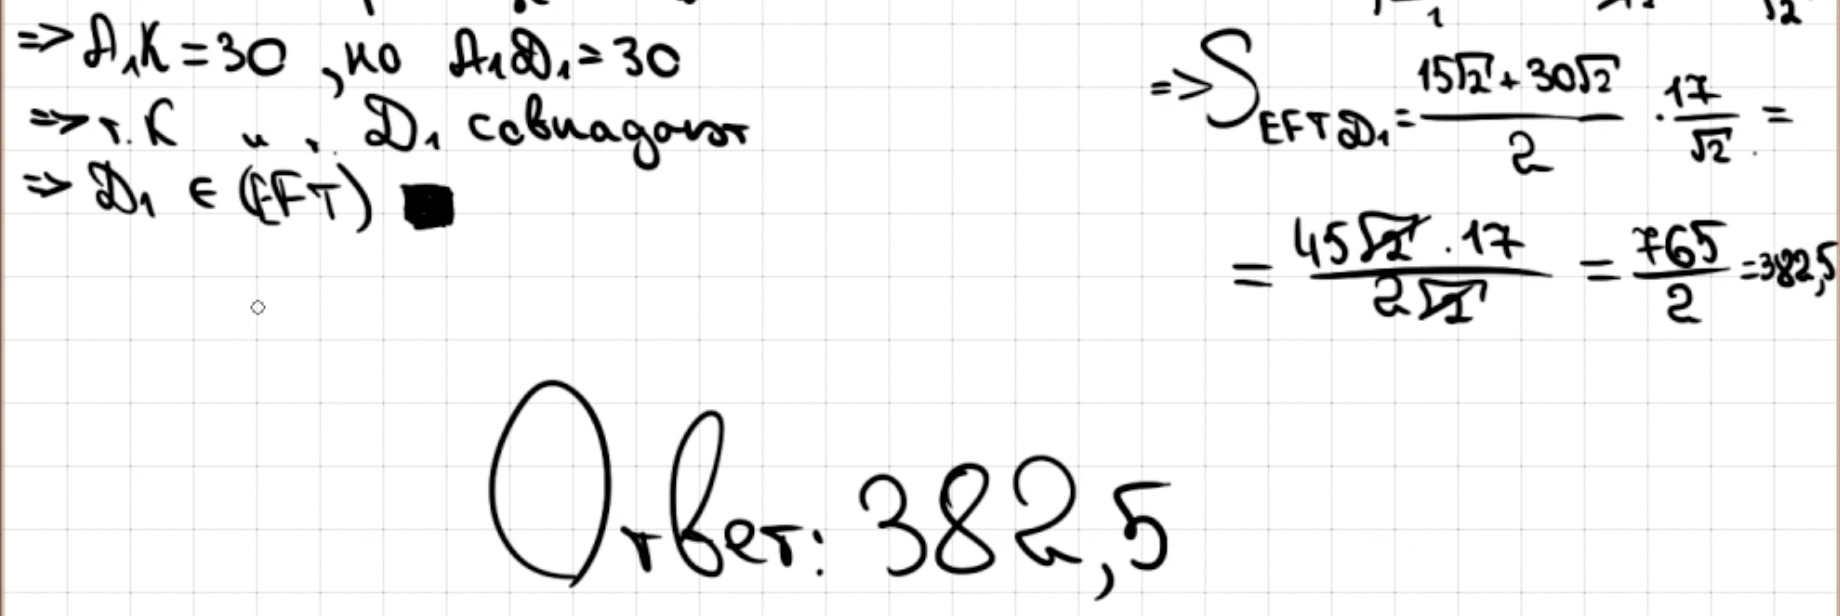 => A₁K = 30, но A₁D₁ = 30
=> т. K и т. D₁ совпадают
=> D₁ ∈ (EFT) ■
=> S_EFTD₁ = (15√2 + 30√2)/2 · 17/√2 =
= (45√2 · 17)/(2√2) = 765/2 = 382,5
Ответ: 382,5